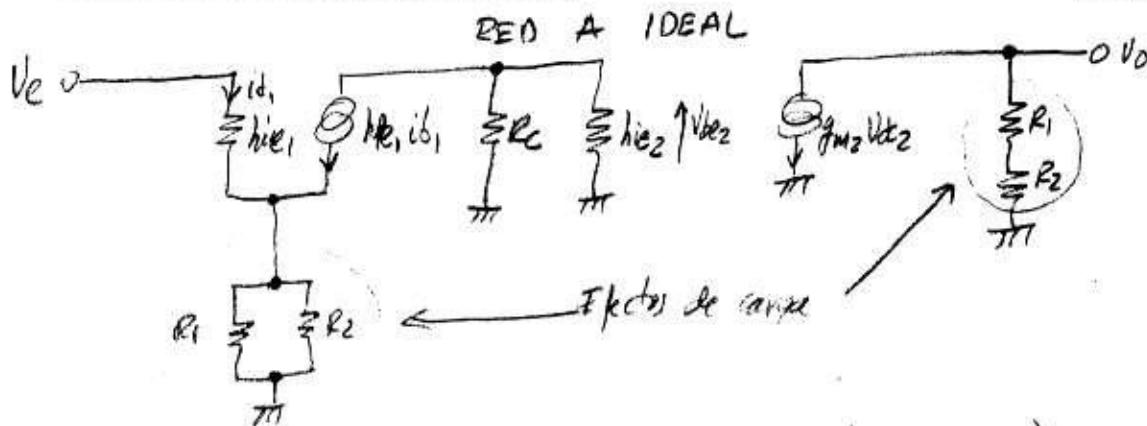 RED A IDEAL
Ve
ib1
hie1
hfe1 ib1
Rc
hie2
Vbe2
gm2 Vbe2
Vo
R1
R2
R1
R2
Efectos de carga